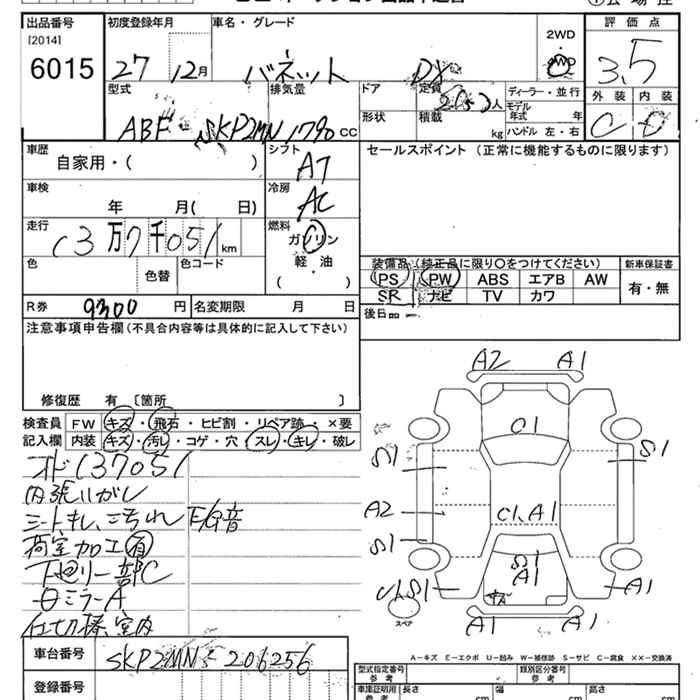 出品番号 初度登録年月 車名・グレード 2WD 評価点
[2014]
6015 27 12月 バネット DX 3.5
型式 排気量 ドア 定員 人 ディーラー・並行 外装 内装
モデル年式 年
ABF-SKP2MN 1790 CC 形状 積載 kg ハンドル 左・右 C D
車歴 シフト セールスポイント (正常に機能するものに限ります)
自家用・( ) AT
車検 冷房
年 月( 日) AC
走行 燃料
13万7千051km ガソリン
色 色替 色コード 軽・油
( )
装備品(純正品に限り○をつけてください) 新車保証書
PS PW ABS エアB AW 有・無
SR ナビ TV カワ
R券 9300円 名変期限 月 日 後日品
注意事項申告欄(不具合内容等は具体的に記入して下さい)
修復歴 有 [箇所 ]
検査員 FW キズ・飛石・ヒビ割・リペア跡・×要
記入欄 内装 キズ・汚レ・コゲ・穴・スレ・キレ・破レ
オド137051
内張りハガレ
シートキレ、ヨゴれ E/G音
荷室加工有
下廻り一部C
仕切棒、室内
A2 A1
C1
S1 S1
A2 C1,A1
S1 S1
A1
A1 A1
スペア
A1 A1
車台番号 SKP2MN-206256
登録番号
A-キズ E-エクボ U-凹み W-補修跡 S-サビ C-腐食 XX-交換済
型式指定番号 参考 類別区分番号 参考
車庫証明用 参考 長さ cm 幅 cm 高さ cm